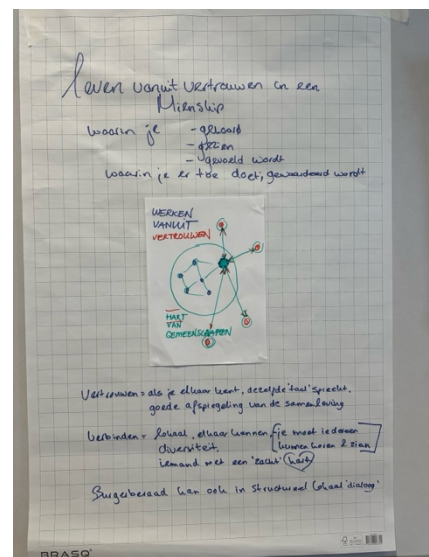 leven vanuit vertrouwen in een
Mienship
waarin je - gehoord
- gezien
- gevoeld wordt
waarin je er toe doet, gewaardeerd wordt
WERKEN
VANUIT
VERTROUWEN
HART
VAN
GEMEENSCHAPPEN
Vertrouwen = als je elkaar kent, dezelfde 'taal' spreekt,
goede afspiegeling van de samenleving
Verbinden = lokaal, elkaar kennen, je moet iedereen
diversiteit, kunnen horen & zien
iemand met een 'zacht' hart
Burgerberaad kan ook in structureel lokaal 'dialoog'
BRASQ